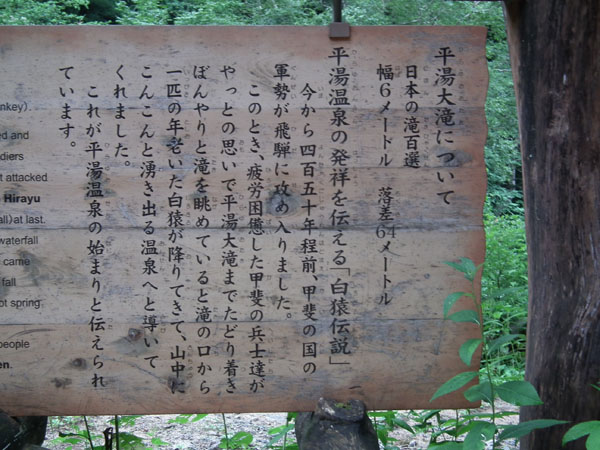 平湯大滝について
日本の滝百選
幅6メードル 落差64メートル
平湯温泉の発祥を伝える「白猿伝説」
今から四百五十年程前、甲斐の国の
軍勢が飛騨に攻め入りました。
このとき、疲労困憊した甲斐の兵士達が
やっとの思いで平湯大滝までたどり着き
ぼんやりと滝を眺めていると滝の口から
一匹の年老いた白猿が降りてきて、山中に
こんこんと湧き出る温泉へと導いて
くれました。
これが平湯温泉の始まりと伝えられ
ています。
nkey)
ed and
diers
t attacked
Hirayu
all)at last.
waterfall
came
fall
ot spring
people
en.